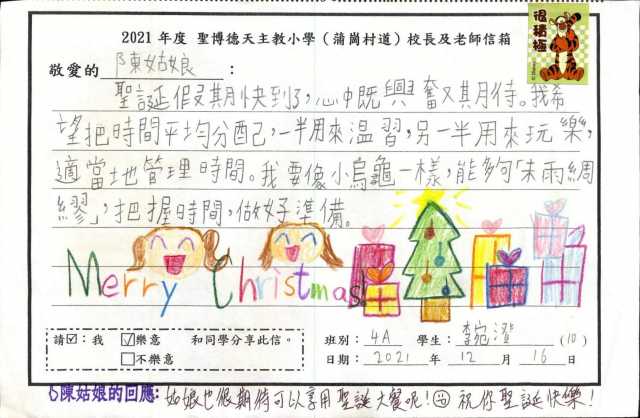 2021 年度 聖博德天主教小學（蒲崗村道）校長及老師信箱
很積極
敬愛的 陳姑娘：
聖誕假期快到了，心中既興奮又期待。我希
望把時間平均分配，一半用來溫習，另一半用來玩樂，
適當地管理時間。我要像小烏龜一樣，能夠「未雨綢
繆」，把握時間，做好準備。
Merry Christmas!
請☑：我 ☑樂意 和同學分享此信。 班別：4A 學生：李宛澄 (10)
☐不樂意 日期：2021 年 12 月 16 日
陳姑娘的回應：姑娘也很期待可以享用聖誕大餐呢！祝你聖誕快樂！